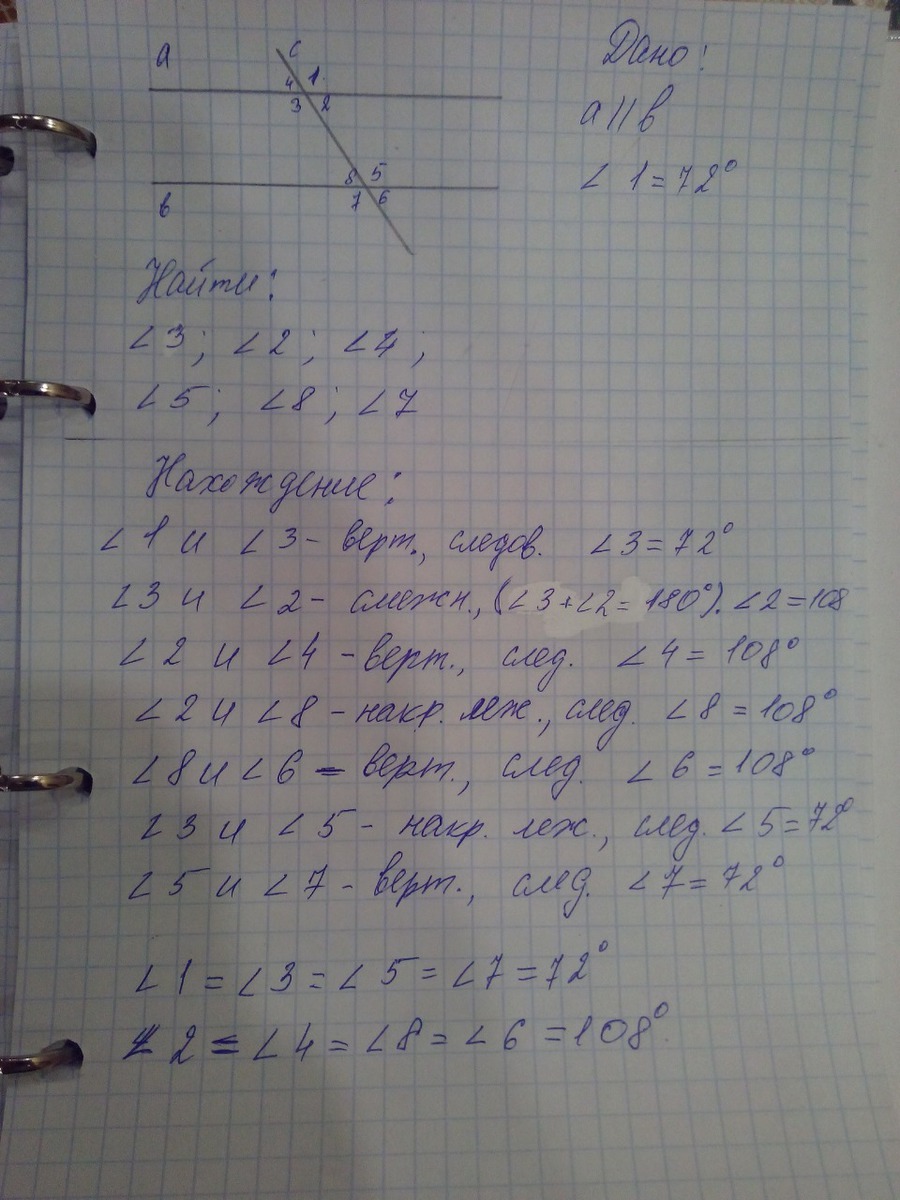 a
c
4 1
3 2
8 5
7 6
в
Дано:
a || b
∠ 1 = 72°
Найти:
∠3; ∠2; ∠4;
∠5; ∠8; ∠7
Нахождение:
∠1 и ∠3 - верт., следов. ∠3 = 72°
∠3 и ∠2 - смежн., (∠3+∠2= 180°). ∠2 = 108
∠2 и ∠4 - верт., след. ∠4 = 108°
∠2 и ∠8 - накр. леж., след. ∠8 = 108°
∠8 и ∠6 - верт., след. ∠6 = 108°
∠3 и ∠5 - накр. леж., след. ∠5 = 72°
∠5 и ∠7 - верт., след. ∠7 = 72°
∠1 = ∠3 = ∠5 = ∠7 = 72°
∠2 = ∠4 = ∠8 = ∠6 = 108°